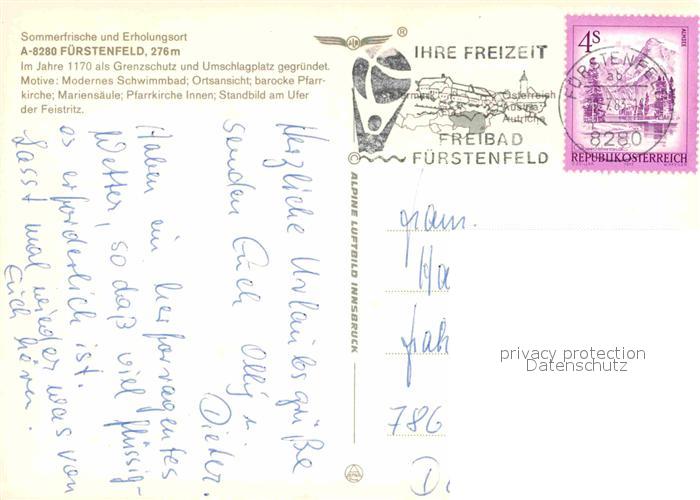 Sommerfrische und Erholungsort
A-8280 FÜRSTENFELD, 276m
Im Jahre 1170 als Grenzschutz und Umschlagplatz gegründet.
Motive: Modernes Schwimmbad; Ortsansicht; barocke Pfarr-
kirche; Mariensäule; Pfarrkirche Innen; Standbild am Ufer
der Feistritz.
®
IHRE FREIZEIT
Österreich
Austria
Autriche
FREIBAD
FÜRSTENFELD
4S
FÜRSTENFE
ab
8280
REPUBLIK ÖSTERREICH
ALPINE LUFTBILD INNSBRUCK
Herzliche Urlaubsgrüße
senden Euch Olly u.
Dieter.
Haben ein hervorragentes
Wetter, so daß viel flüssig-
es erforderlich ist.
Lasst mal wieder was von
Euch hören.
Fam.
Ha
786
D.
privacy protection
Datenschutz